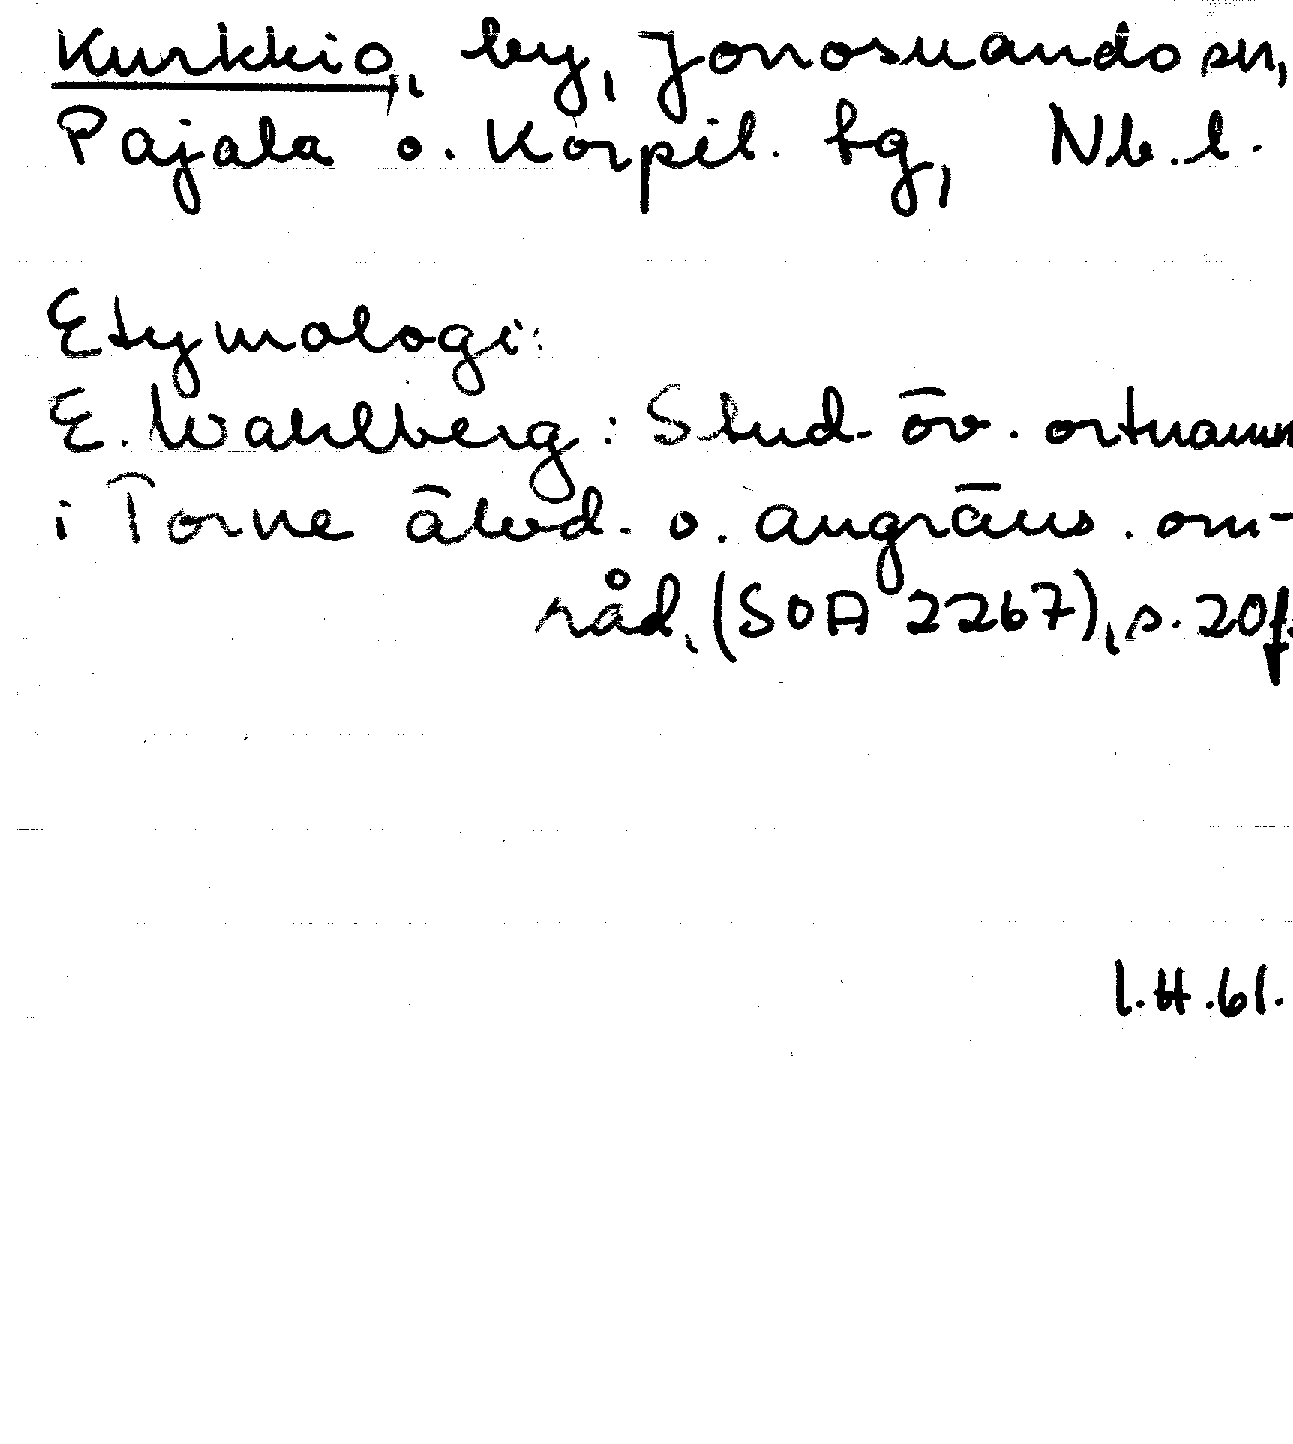 Kurkkio, by, Jonosuando sn,
Pajala o. Korpil. tg, Nb. l.
Etymologi:
E. Wahlberg: Stud. öv. ortnamn
i Torne älvd. o. angräns. om-
råd. (SOA 2267), s. 20f.
I.H. 61.